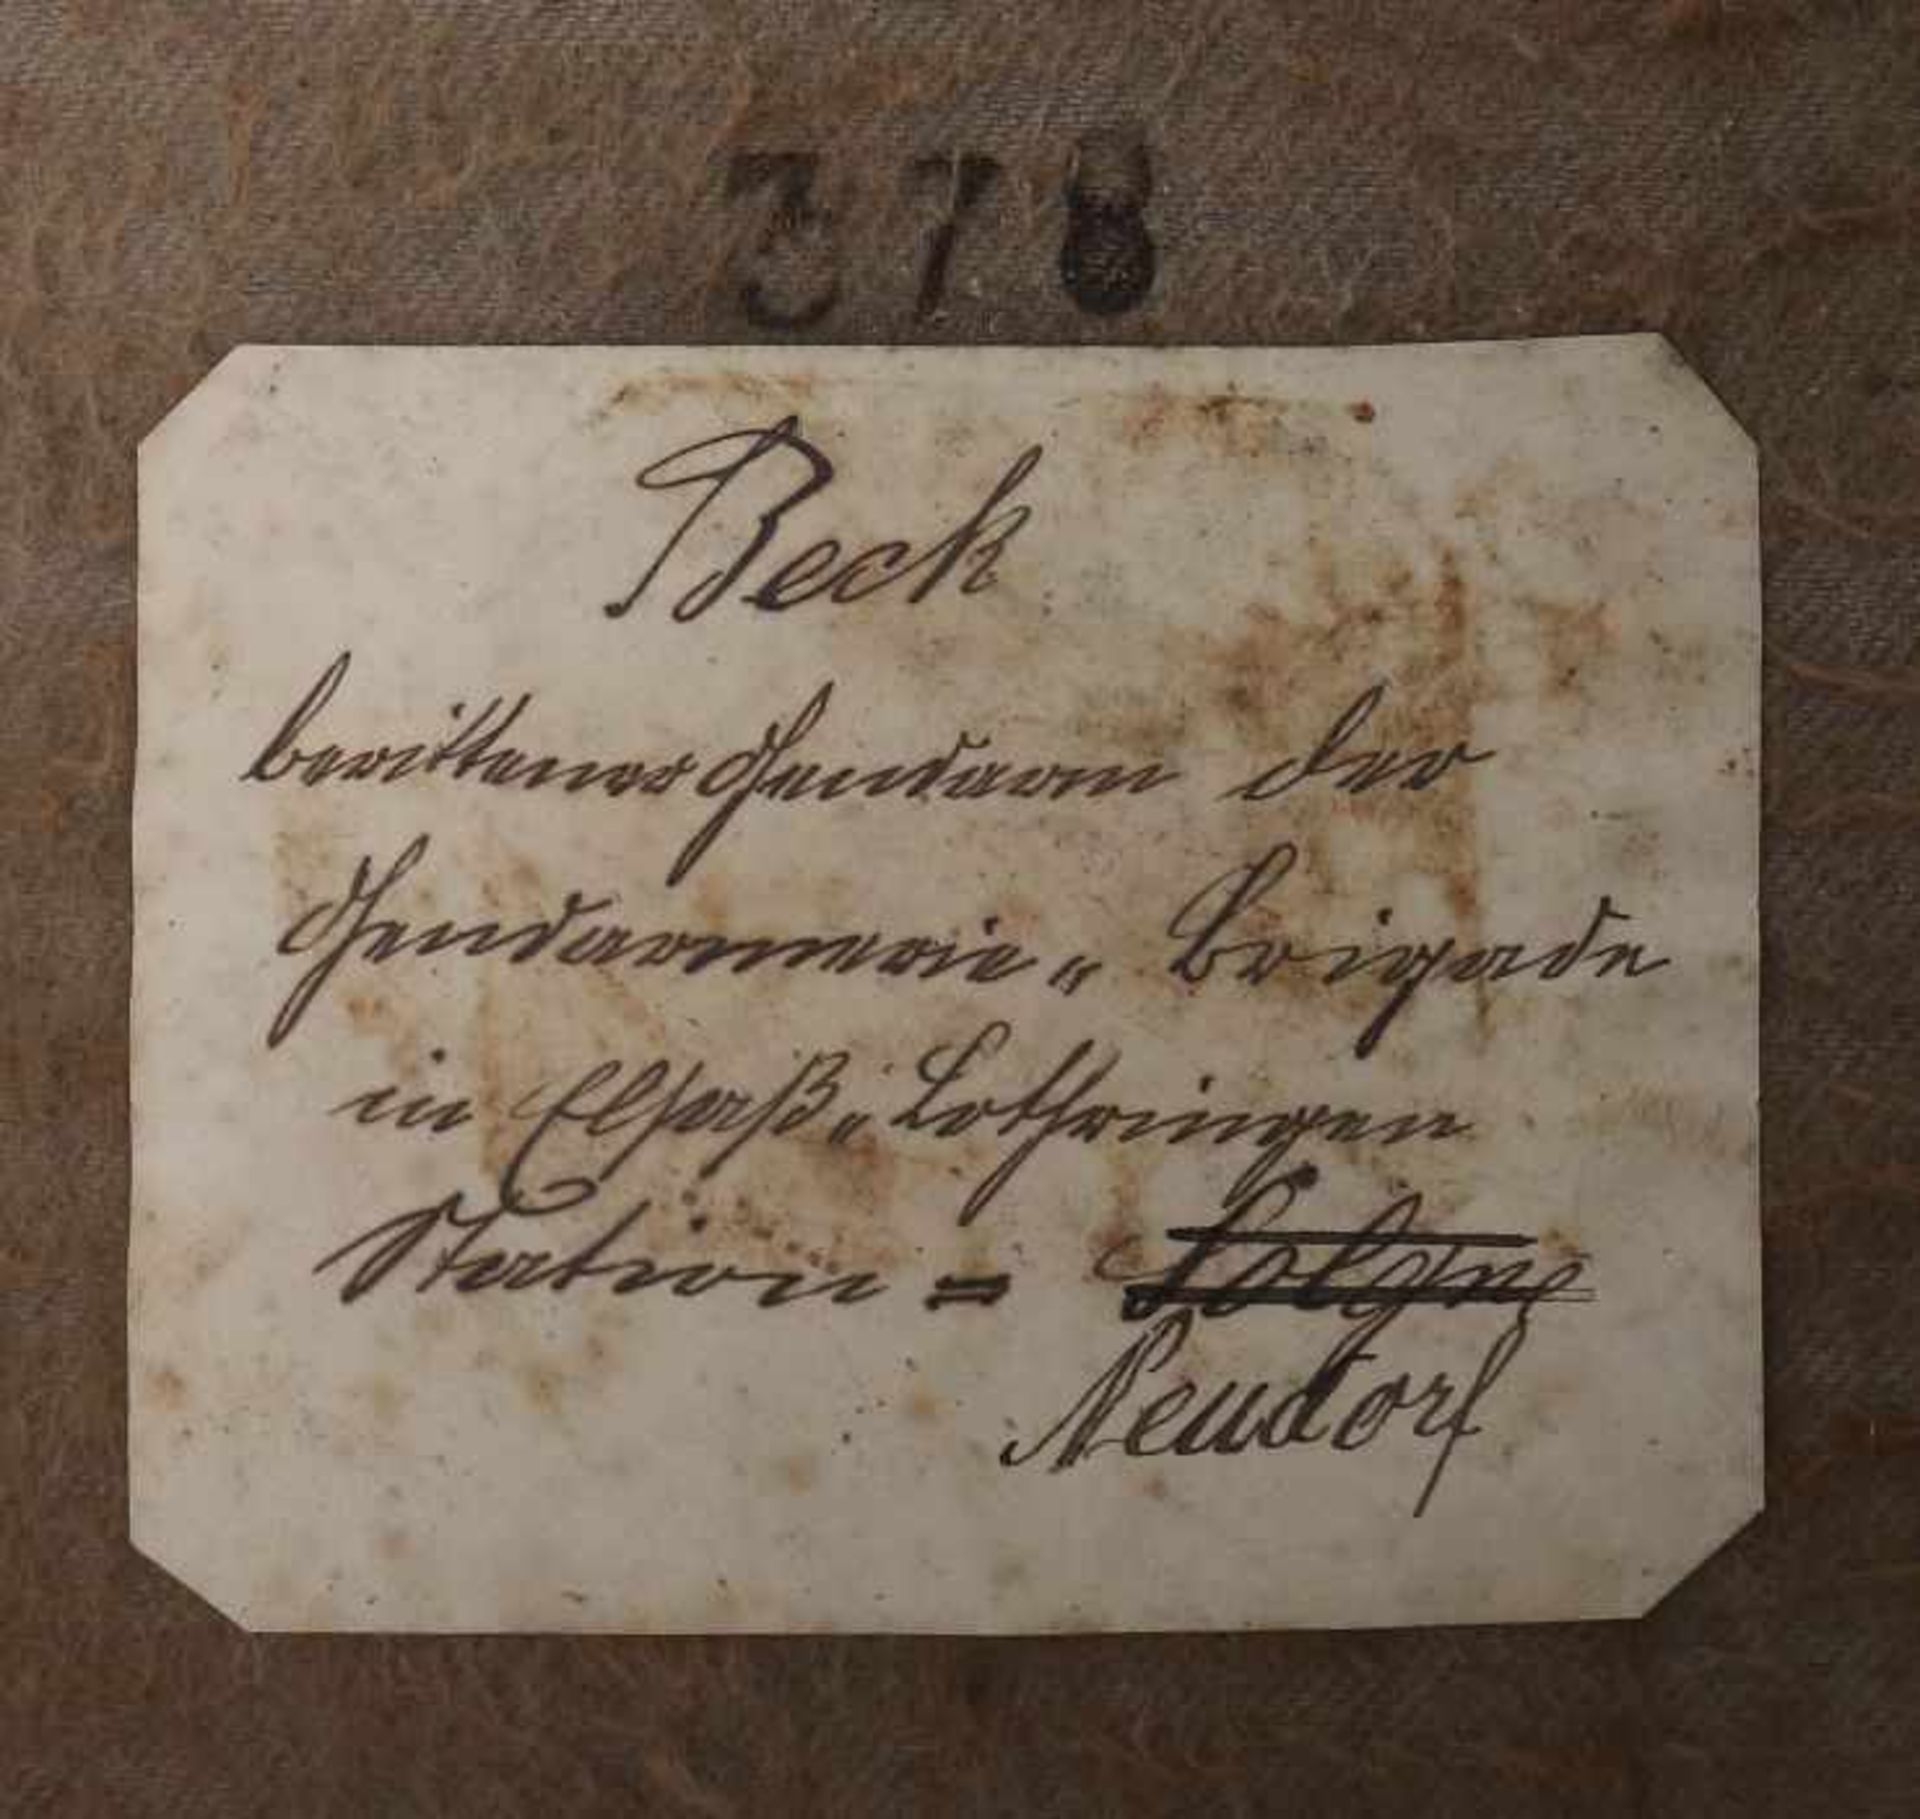 378
Beck
berittener Gendarm der
Gendarmerie- Brigade
in Elsaß-Lothringen
Station = Solgne
Neudorf